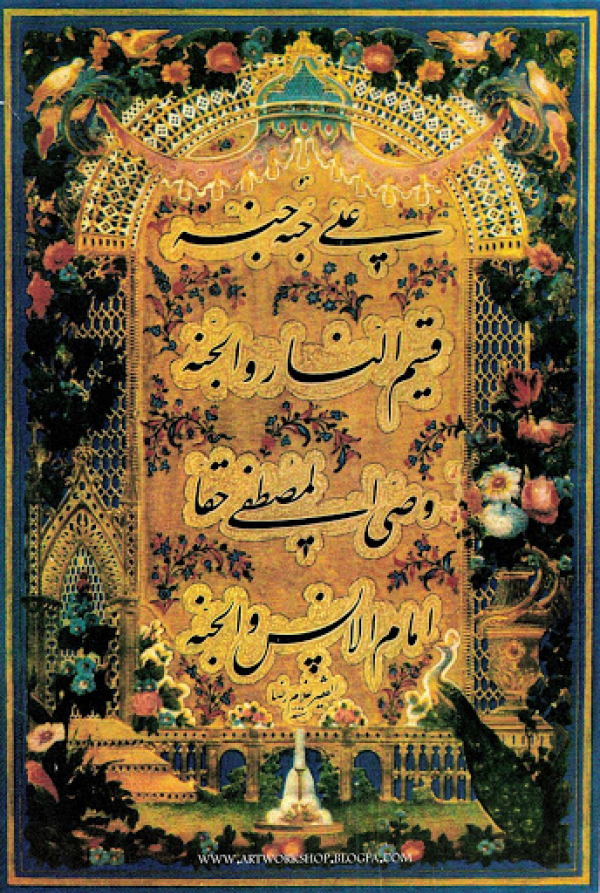 علی حبه جنه
قسیم النار والجنه
وصی المصطفی حقا
امام الانس والجنه
الفقیر غلامرضا
WWW.ARTWORKSHOP.BLOGFA.COM